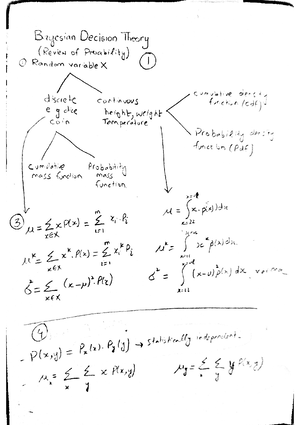 Bayesian Decision Theory
(Review of Probability)
Random variable X
①
discrete
e.g dice
coin
continuous
height, weight
Temperature
cumulative density
function (cdf)
Probability density
function (Pdf)
cumulative
mass function
Probability
mass
function
③
μ = Σ x P(x) = Σ xᵢ Pᵢ
x∈X
μᵏ = Σ xᵏ P(x) = Σ xᵢᵏ Pᵢ
x∈X
σ² = Σ (x-μ)² P(x)
x∈X
μ = ∫ x p(x) dx
μᵏ = ∫ xᵏ p(x) dx
σ² = ∫ (x-μ)² p(x) dx
④
P(x,y) = Pₓ(x) · P_y(y) → statistically independent.
μₓ = Σ Σ x P(x,y)
x y
μ_y = Σ Σ y P(x,y)